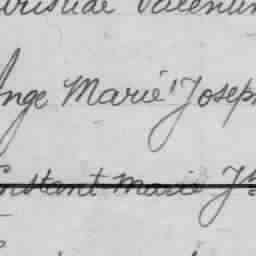 Valentin
Ange Marie Joseph
Constant Marie Jh